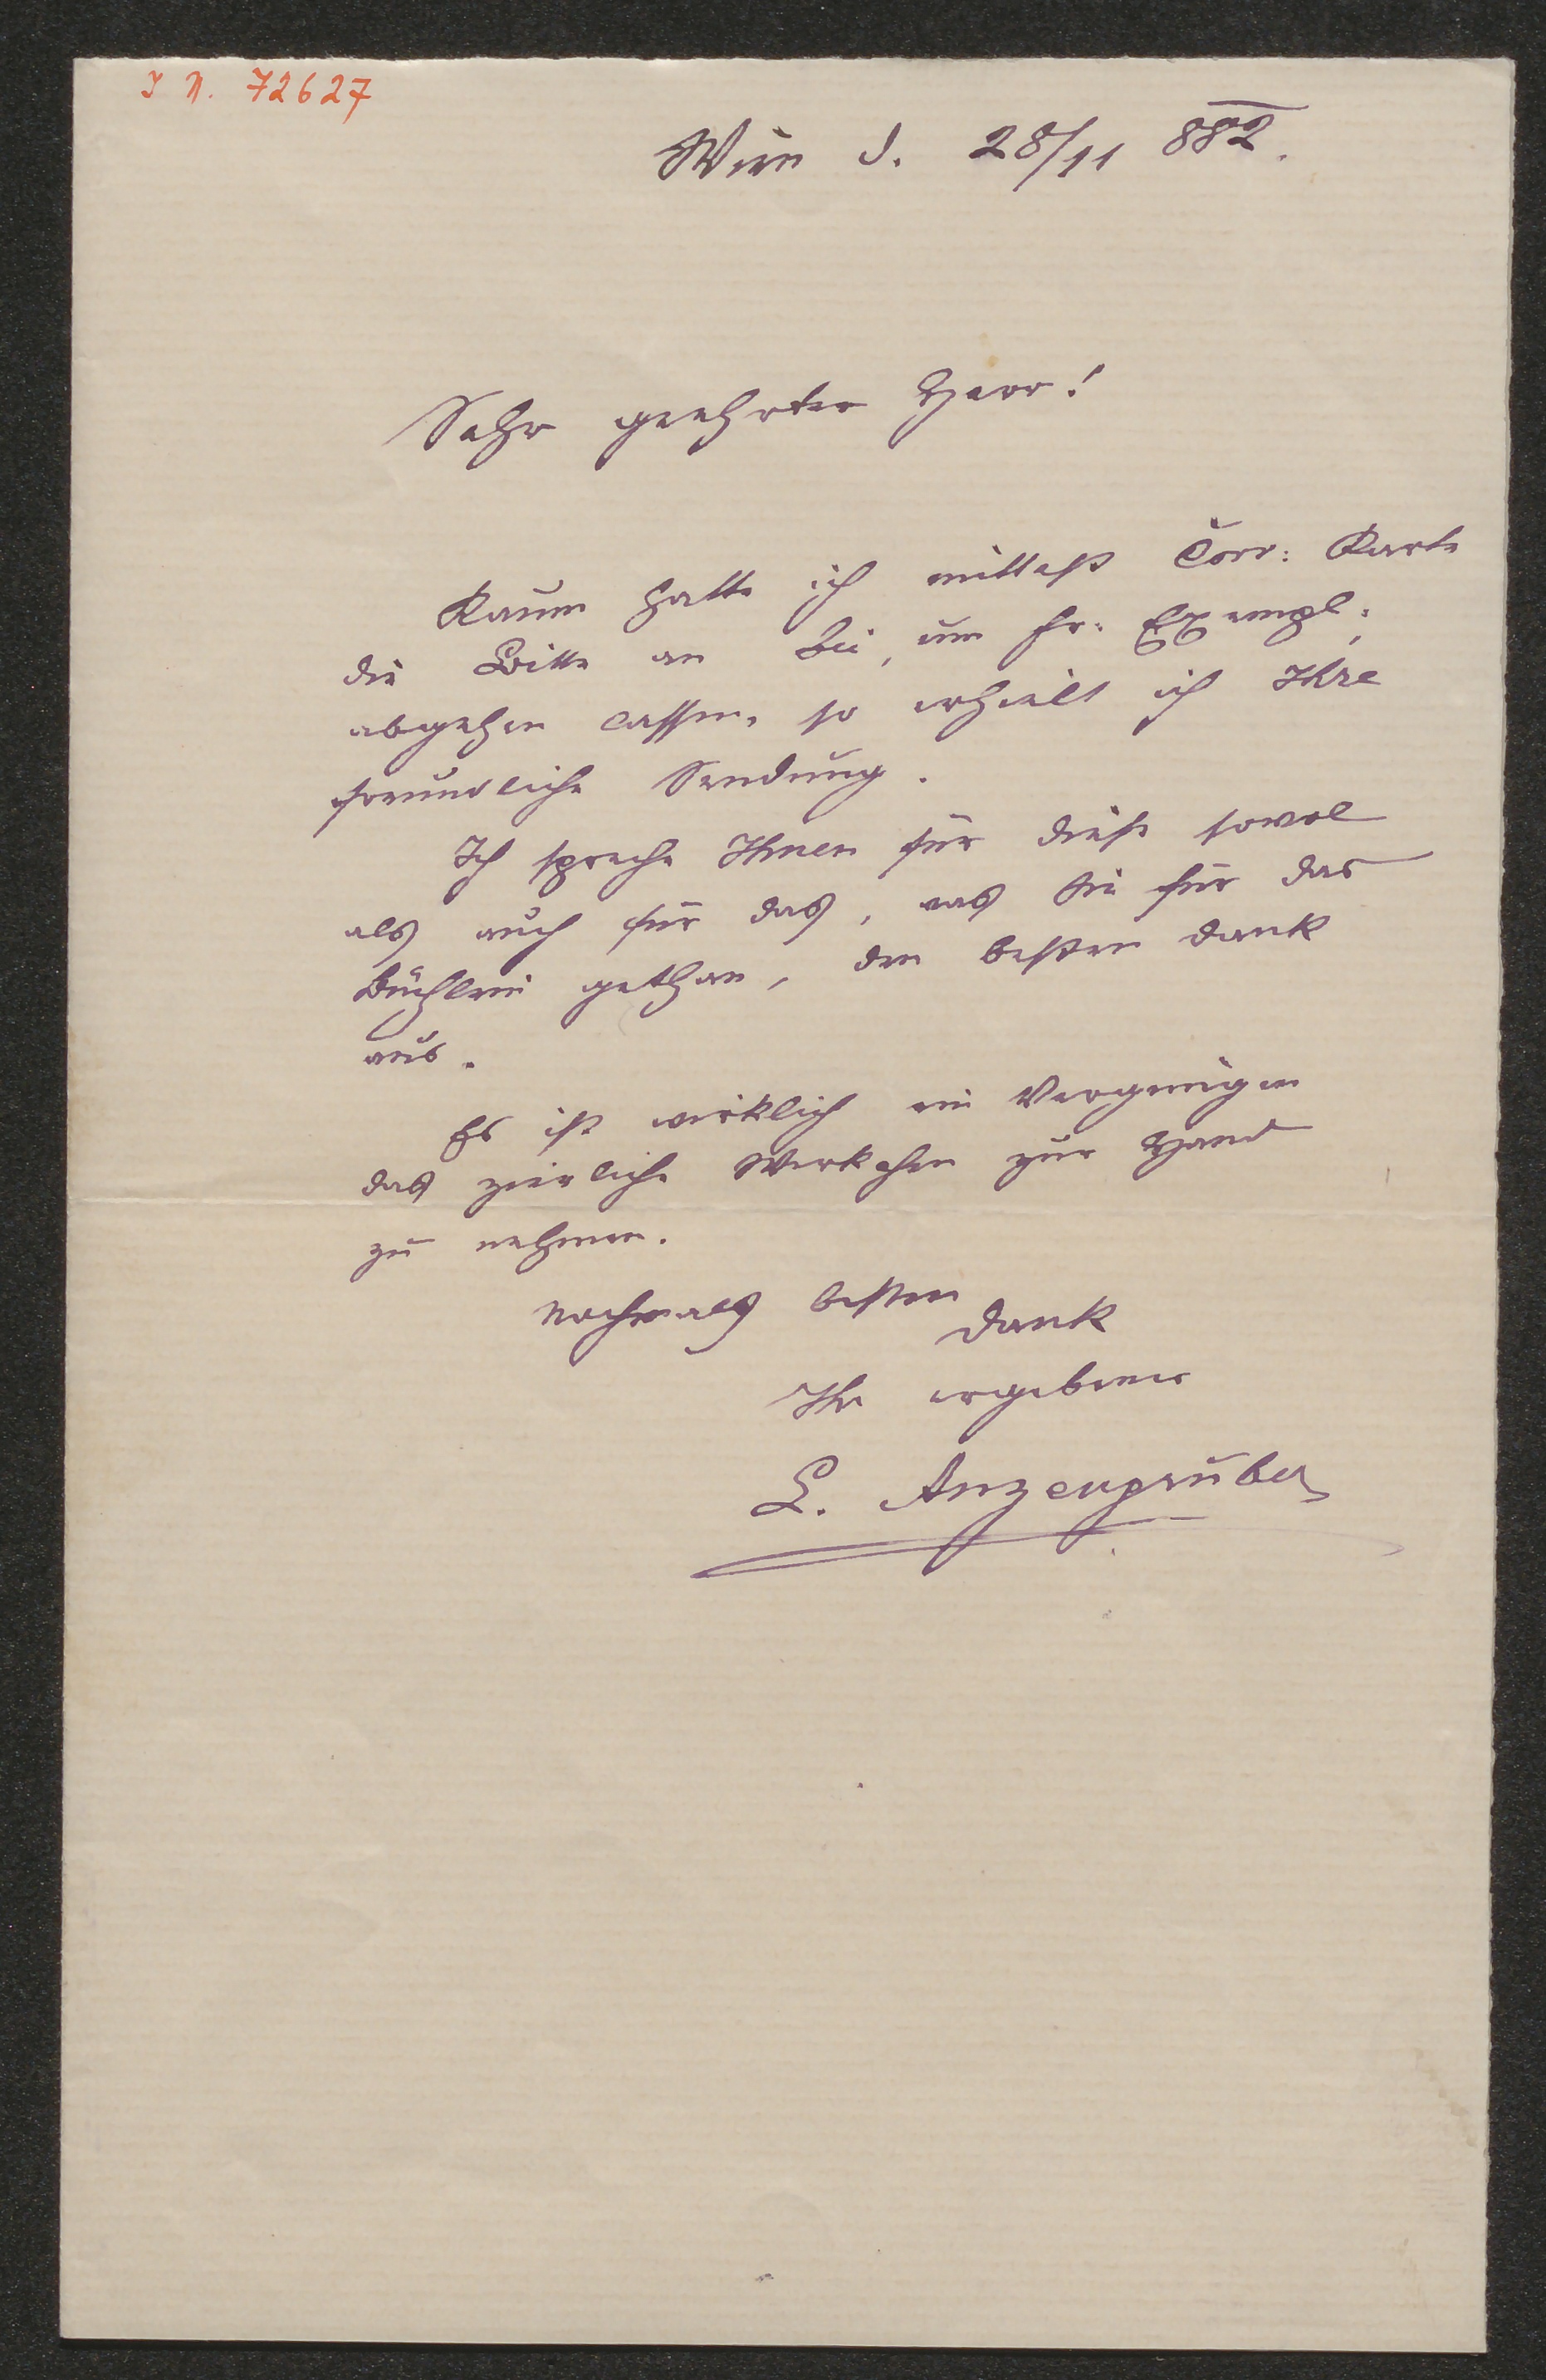 I N. 72627
Wien d. 28/11 882.
Sehr geehrter Herr!
Kaum hatte ich mittelst Corr: Karte
die Bitte an Sie, um fr: Exempl:
abgehen lassen, so erhielt ich Ihre
freundliche Sendung.
Ich spreche Ihnen für diese sowol
als auch für das, was Sie für das
Büchlein gethan, den besten Dank
aus.
Es ist wirklich ein Vergnügen
das zierliche Werkchen zur Hand
zu nehmen.
Nochmals besten
Dank
Ihr ergebener
L. Anzengruber